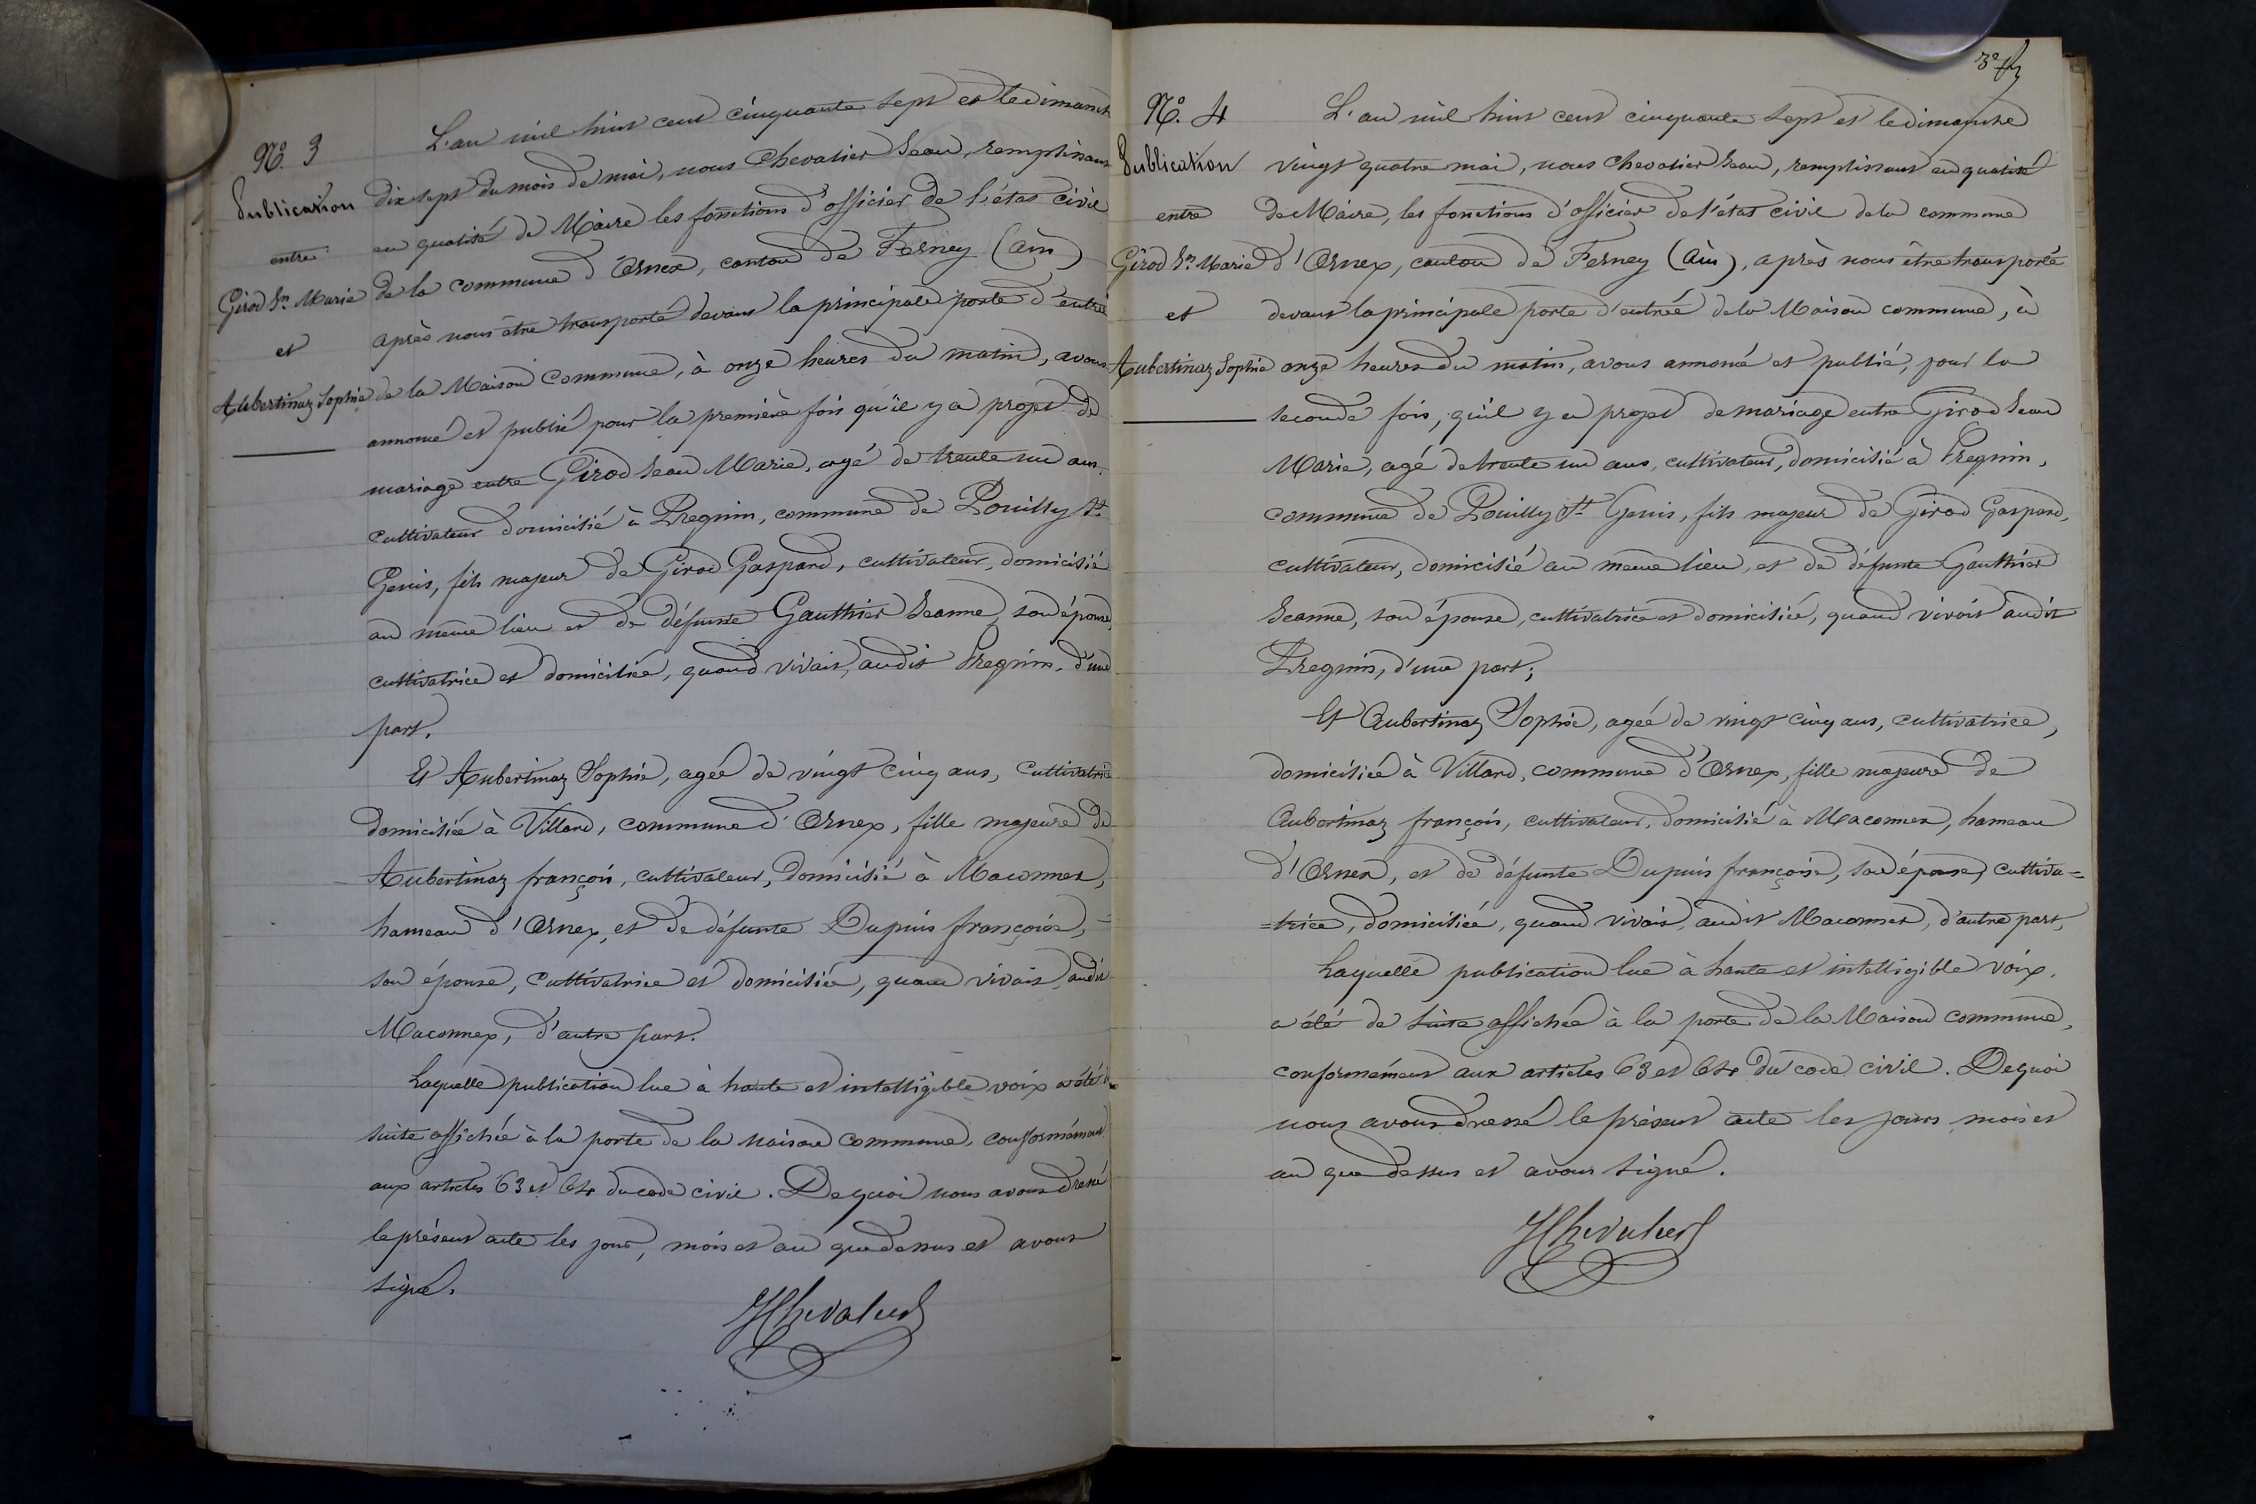 N.° 3
Publication
entre
Girod Jn. Marie
et
Aubertinaz Sophie
L'an mil huit cent cinquante sept et le dimanche
dix sept du mois de mai, nous Chevalier Jean, remplissant
en qualité de Maire les fonctions d'officier de l'état civil
de la commune d'Ornex, canton de Ferney (Ain)
après nous être transporté devant la principale porte d'entrée
de la Maison commune, à onze heures du matin, avons
annoncé et publié pour la première fois qu'il y a projet de
mariage entre Girod Jean Marie, agé de trente un ans,
cultivateur domicilié à Pregnin, commune de Pouilly St.
Genis, fils majeur de Girod Gaspard, cultivateur, domicilié
au même lieu et de défunte Gauthier Jeanne, son épouse,
cultivatrice et domiciliée, quand vivait, audit Pregnin, d'une
part.
Et Aubertinaz Sophie, agée de vingt cinq ans, cultivatrice
domiciliée à Villard, commune d'Ornex, fille majeure de
Aubertinaz françois, cultivateur, domicilié à Maconnex,
hameau d'Ornex, et de défunte Dupuis françoise,
son épouse, cultivatrice et domiciliée, quand vivait, audit
Maconnex, d'autre part.
Laquelle publication lue à haute et intelligible voix a été de
suite affichée à la porte de la maison commune, conformément
aux articles 63 et 64 du code civil. De quoi nous avons dressé
le présent acte les jour, mois et an que dessus et avons
signé.
JChevalier
3e f
N.° 4
Publication
entre
Girod Jn. Marie
et
Aubertinaz Sophie
L'an mil huit cent cinquante sept et le dimanche
vingt quatre mai, nous Chevalier Jean, remplissant en qualité
de Maire, les fonctions d'officier de l'état civil de la commune
d'Ornex, canton de Ferney (Ain), après nous être transporté
devant la principale porte d'entrée de la Maison commune, à
onze heures du matin, avons annoncé et publié, pour la
seconde fois, qu'il y a projet de mariage entre Girod Jean
Marie, agé de trente un ans, cultivateur, domicilié à Pregnin,
commune de Pouilly St. Genis, fils majeur de Girod Gaspard,
cultivateur, domicilié au même lieu, et de défunte Gauthier
Jeanne, son épouse, cultivatrice et domiciliée, quand vivait audit
Pregnin, d'une part;
Et Aubertinaz Sophie, agée de vingt cinq ans, cultivatrice,
domiciliée à Villard, commune d'Ornex, fille majeure de
Aubertinaz françois, cultivateur, domicilié à Maconnex, hameau
d'Ornex, et de défunte Dupuis françoise, son épouse, cultiva=
=trice, domiciliée, quand vivait, audit Maconnex, d'autre part,
Laquelle publication lue à haute et intelligible voix,
a été de suite affichée à la porte de la Maison commune,
conformément aux articles 63 et 64 du code civil. De quoi
nous avons dressé le présent acte les jours, mois et
an que dessus et avons signé.
JChevalier